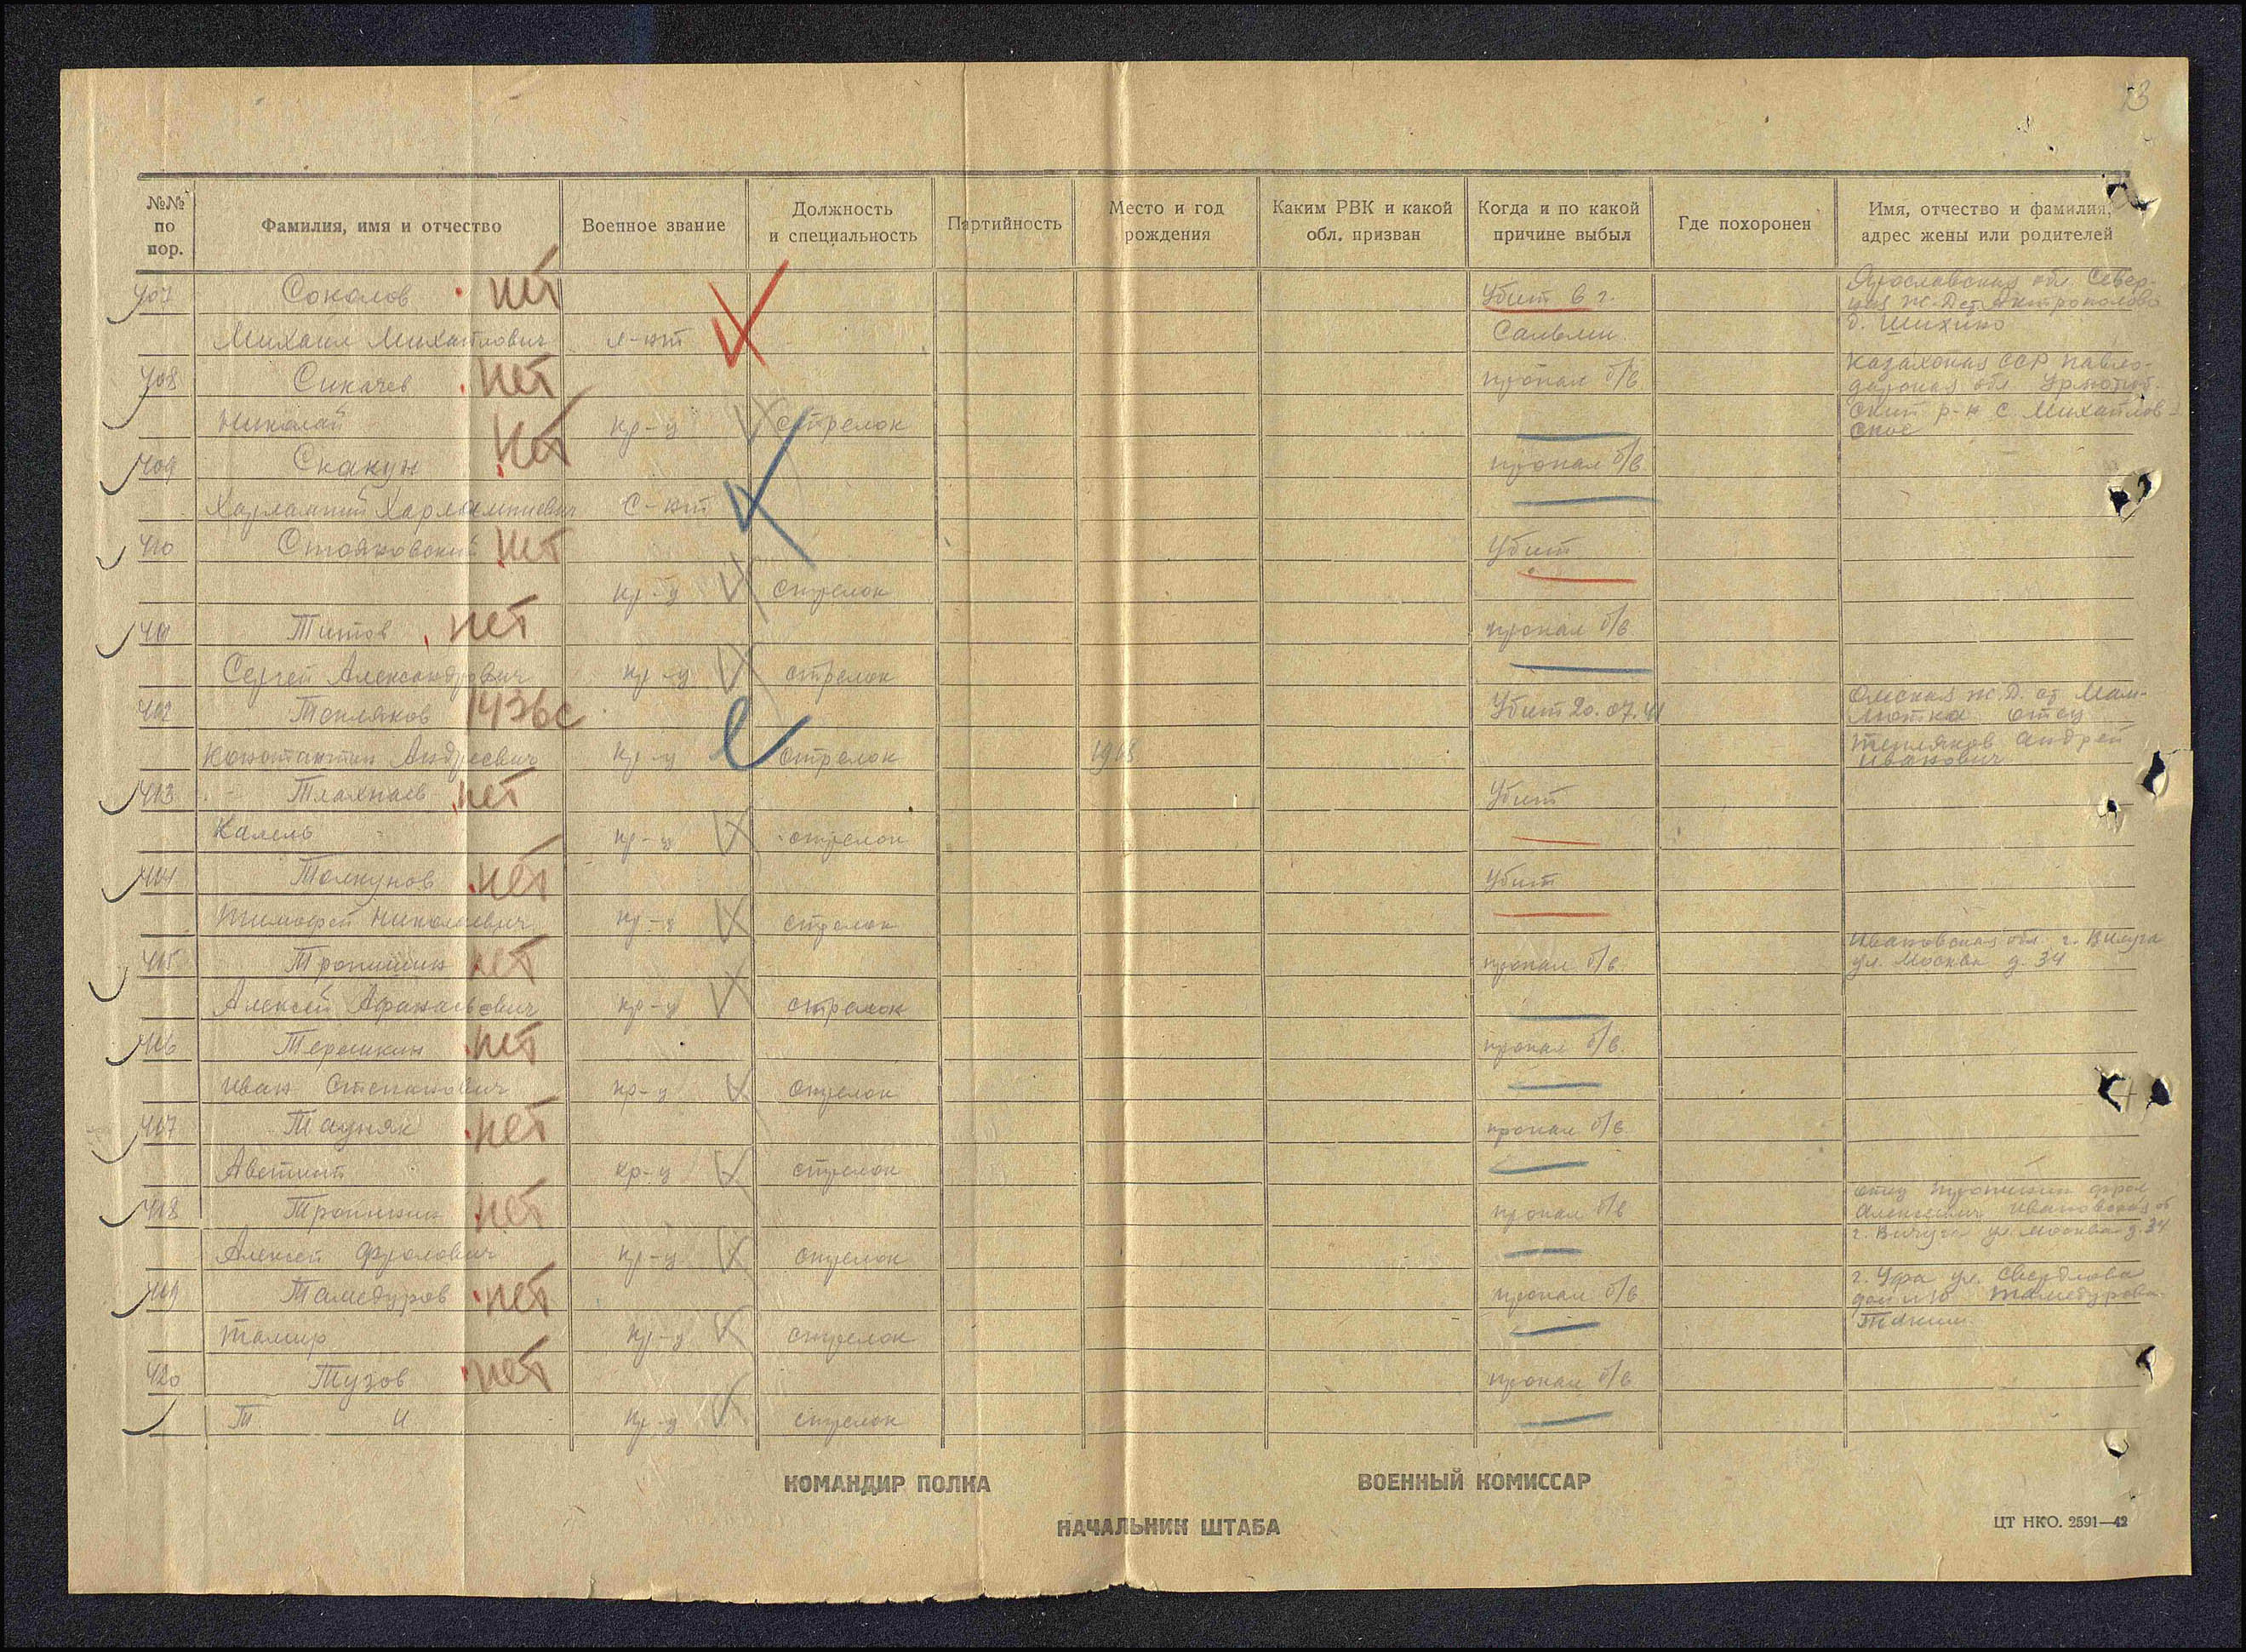 73
№№ по пор.
Фамилия, имя и отчество
Военное звание
Должность и специальность
Партийность
Место и год рождения
Каким РВК и какой обл. призван
Когда и по какой причине выбыл
Где похоронен
Имя, отчество и фамилия, адрес жены или родителей
407 Соколов нет Убит в г. Ярославская обл. Север-
ная ж.д. ст. Антропово
Михаил Михайлович л-нт Сальми д. Шихино
408 Сикачев нет пропал б/в Казахская ССР Павло-
дарская обл.
Николай кр-ц стрелок р-н с. Михайлов-
ское
409 Скакун нет пропал б/в
Харлампий Харлампиевич с-нт
410 Стояковский нет Убит
кр-ц стрелок
411 Титов нет пропал б/в
Сергей Александрович кр-ц стрелок
412 Топляков Убит 20.07.41 Омская ж.д. ст. Мам-
лютка отец
Константин Андреевич кр-ц стрелок Андрей
Иванович
413 нет Убит
Калель кр-ц стрелок
414 Толкунов нет Убит
Тимофей Николаевич кр-ц стрелок
415 Тропишин нет пропал б/в Ивановская обл. г. Вичуга
ул. Москва д. 34
Алексей Афанасьевич кр-ц стрелок
416 Терешкин нет пропал б/в.
Иван Степанович кр-ц стрелок
417 нет пропал б/в
кр-ц стрелок
418 нет пропал б/в отец Фрол
Алексеевич Ивановская об
г. Вичуга ул. Москва д. 34
Алексей Фролович кр-ц стрелок
419 Тамедуров нет пропал б/в г. Уфа ул. Свердлова
дом
Тамир кр-ц стрелок
420 Тузов нет пропал б/в
Т. И. кр-ц стрелок
КОМАНДИР ПОЛКА
ВОЕННЫЙ КОМИССАР
НАЧАЛЬНИК ШТАБА
ЦТ НКО. 2591—42